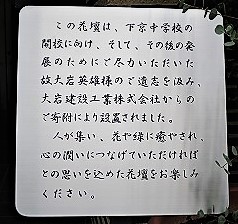 この花壇は、下京中学校の
開校に向け、そして、その後の発
展のためにご尽力いただいた
故大岩英雄様のご遺志を汲み、
大岩建設工業株式会社からの
ご寄附により設置されました。
人が集い、花や緑に癒やされ、
心の潤いにつなげていただければ
との思いを込めた花壇をお楽しみ
ください。